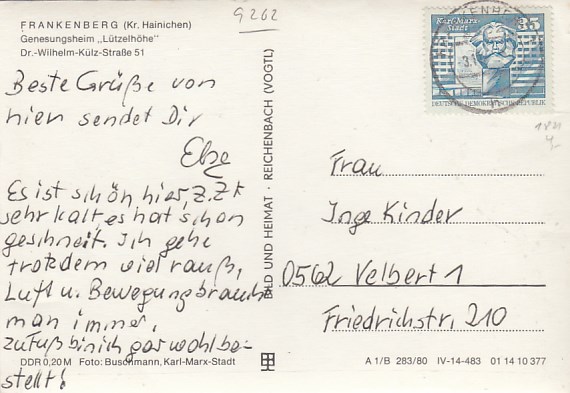 FRANKENBERG (Kr. Hainichen)
Genesungsheim „Lützelhöhe"
Dr.-Wilhelm-Külz-Straße 51
9262
Beste Grüße von
hier sendet Dir
Else
Es ist schön hier, z. Zt
sehr kalt, es hat schon
geschneit. Ich gehe
trotzdem viel rauß,
Luft u. Bewegung brauch
man immer,
zu Fuß bin ich gar wohl be-
stellt!
DDR 0,20 M Foto: Buschmann, Karl-Marx-Stadt
BILD UND HEIMAT · REICHENBACH (VOGTL)
Karl-Marx-
Stadt
35
DEUTSCHE DEMOKRATISCHE REPUBLIK
Frau
Inge Kinder
0562 Velbert 1
Friedrichstr, 210
A 1/B 283/80 IV-14-483 01 14 10 377